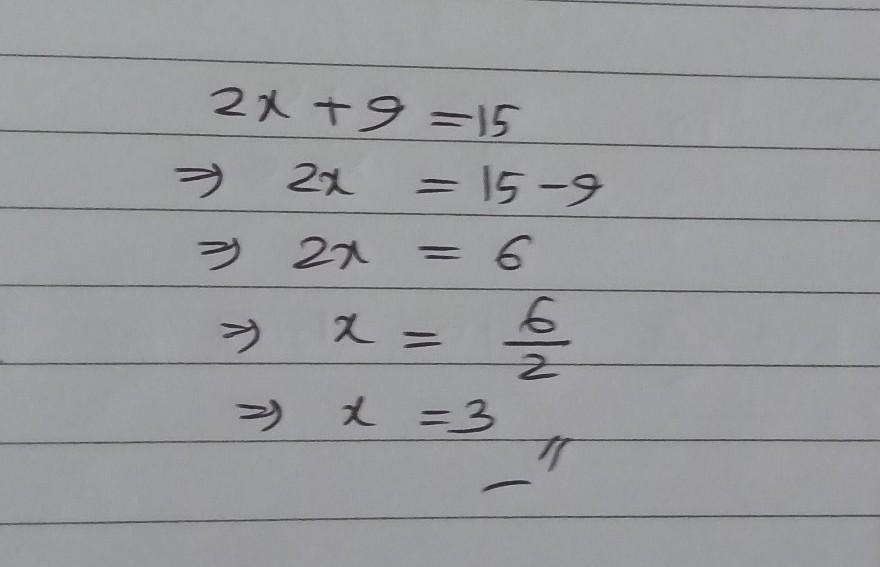 2x + 9 = 15
⇒ 2x = 15 - 9
⇒ 2x = 6
⇒ x = 6/2
⇒ x = 3